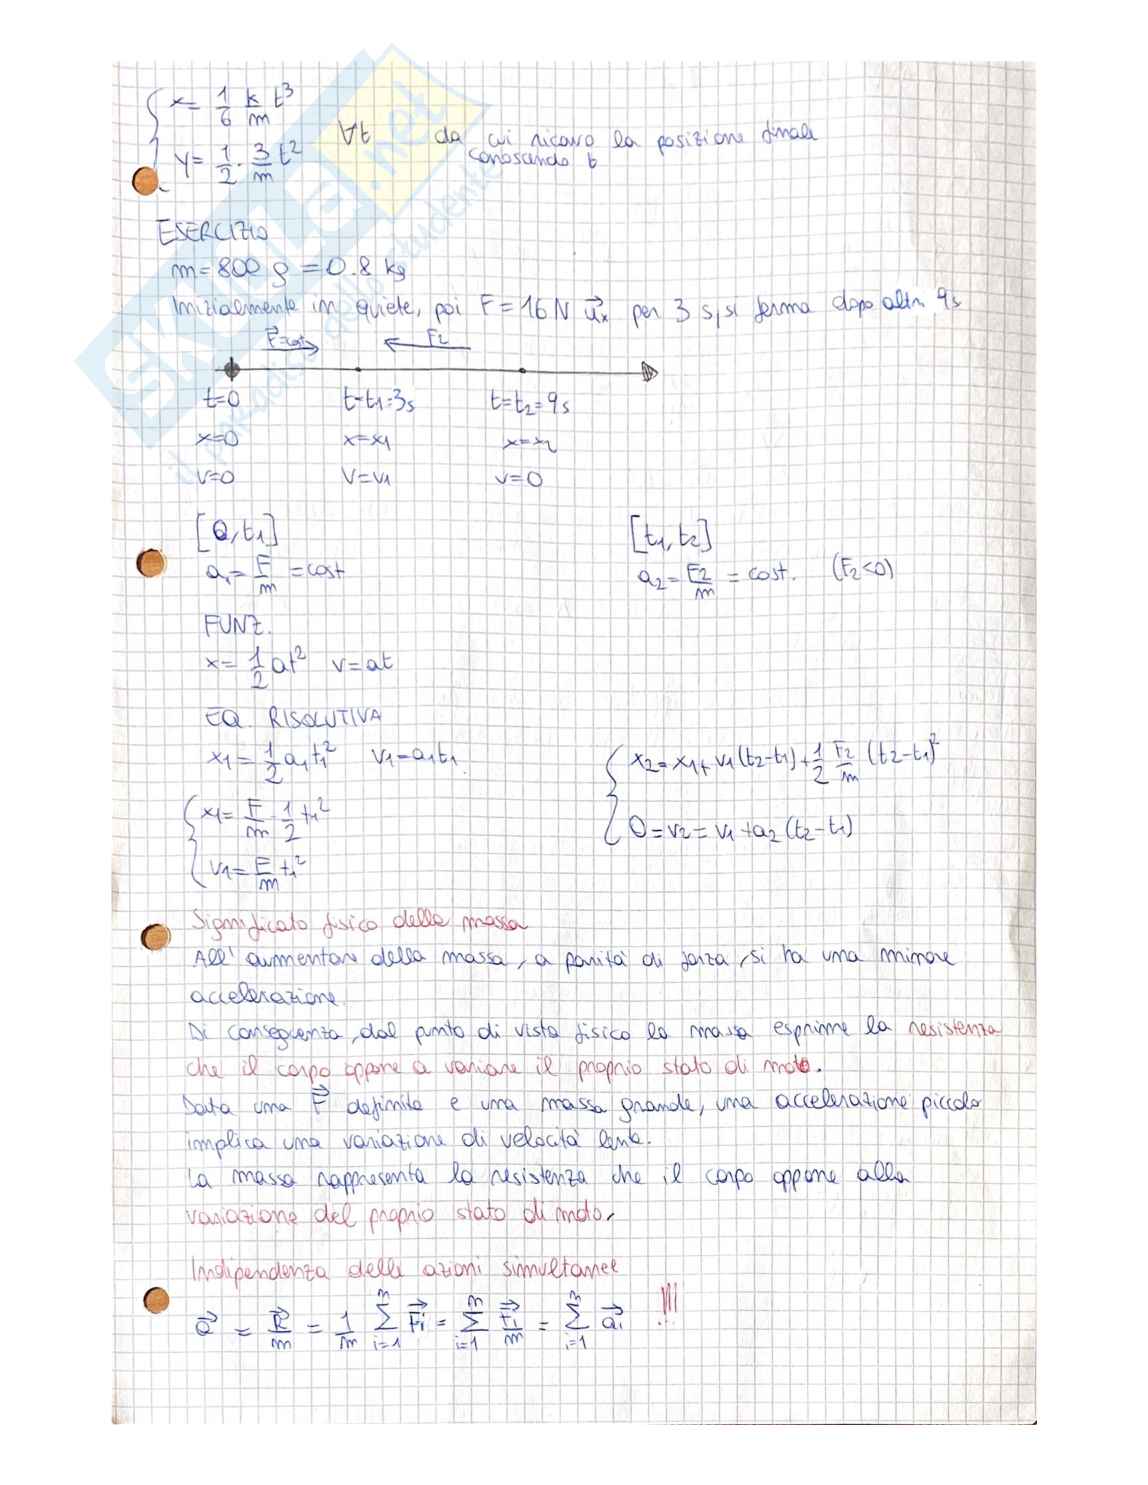 x = 1/6 k/m t³
∀t da cui ricavo la posizione finale
conoscendo t
y = 1/2 · 3/m t²
ESERCIZIO
m = 800 g = 0.8 kg
Inizialmente in quiete, poi F = 16 N u⃗x per 3 s, si ferma dopo altri 9s
F⃗=cost F2
t=0 t=t1=3s t=t2=9s
x=0 x=x1 x=x2
v=0 v=v1 v=0
[0,t1] [t1,t2]
a1 = F/m = cost a2 = F2/m = cost. (F2<0)
FUNZ.
x = 1/2 at² v=at
EQ. RISOLUTIVA
x1 = 1/2 a1t1² v1=a1t1
x2 = x1 + v1(t2-t1) + 1/2 F2/m (t2-t1)²
x1 = F/m · 1/2 t1²
0 = v2 = v1 + a2 (t2-t1)
v1 = F/m t1²
Significato fisico della massa
All'aumentare della massa, a parità di forza, si ha una minore
accelerazione.
Di conseguenza, dal punto di vista fisico la massa esprime la resistenza
che il corpo oppone a variare il proprio stato di moto.
Data una F⃗ definita e una massa grande, una accelerazione piccola
implica una variazione di velocità lenta.
La massa rappresenta la resistenza che il corpo oppone alla
variazione del proprio stato di moto.
Indipendenza delle azioni simultanee
a⃗ = R⃗/m = 1/m ∑ⁿᵢ₌₁ F⃗i = ∑ⁿᵢ₌₁ F⃗i/m = ∑ⁿᵢ₌₁ a⃗i !!!
SKUOLA.net
il paradiso dello studente